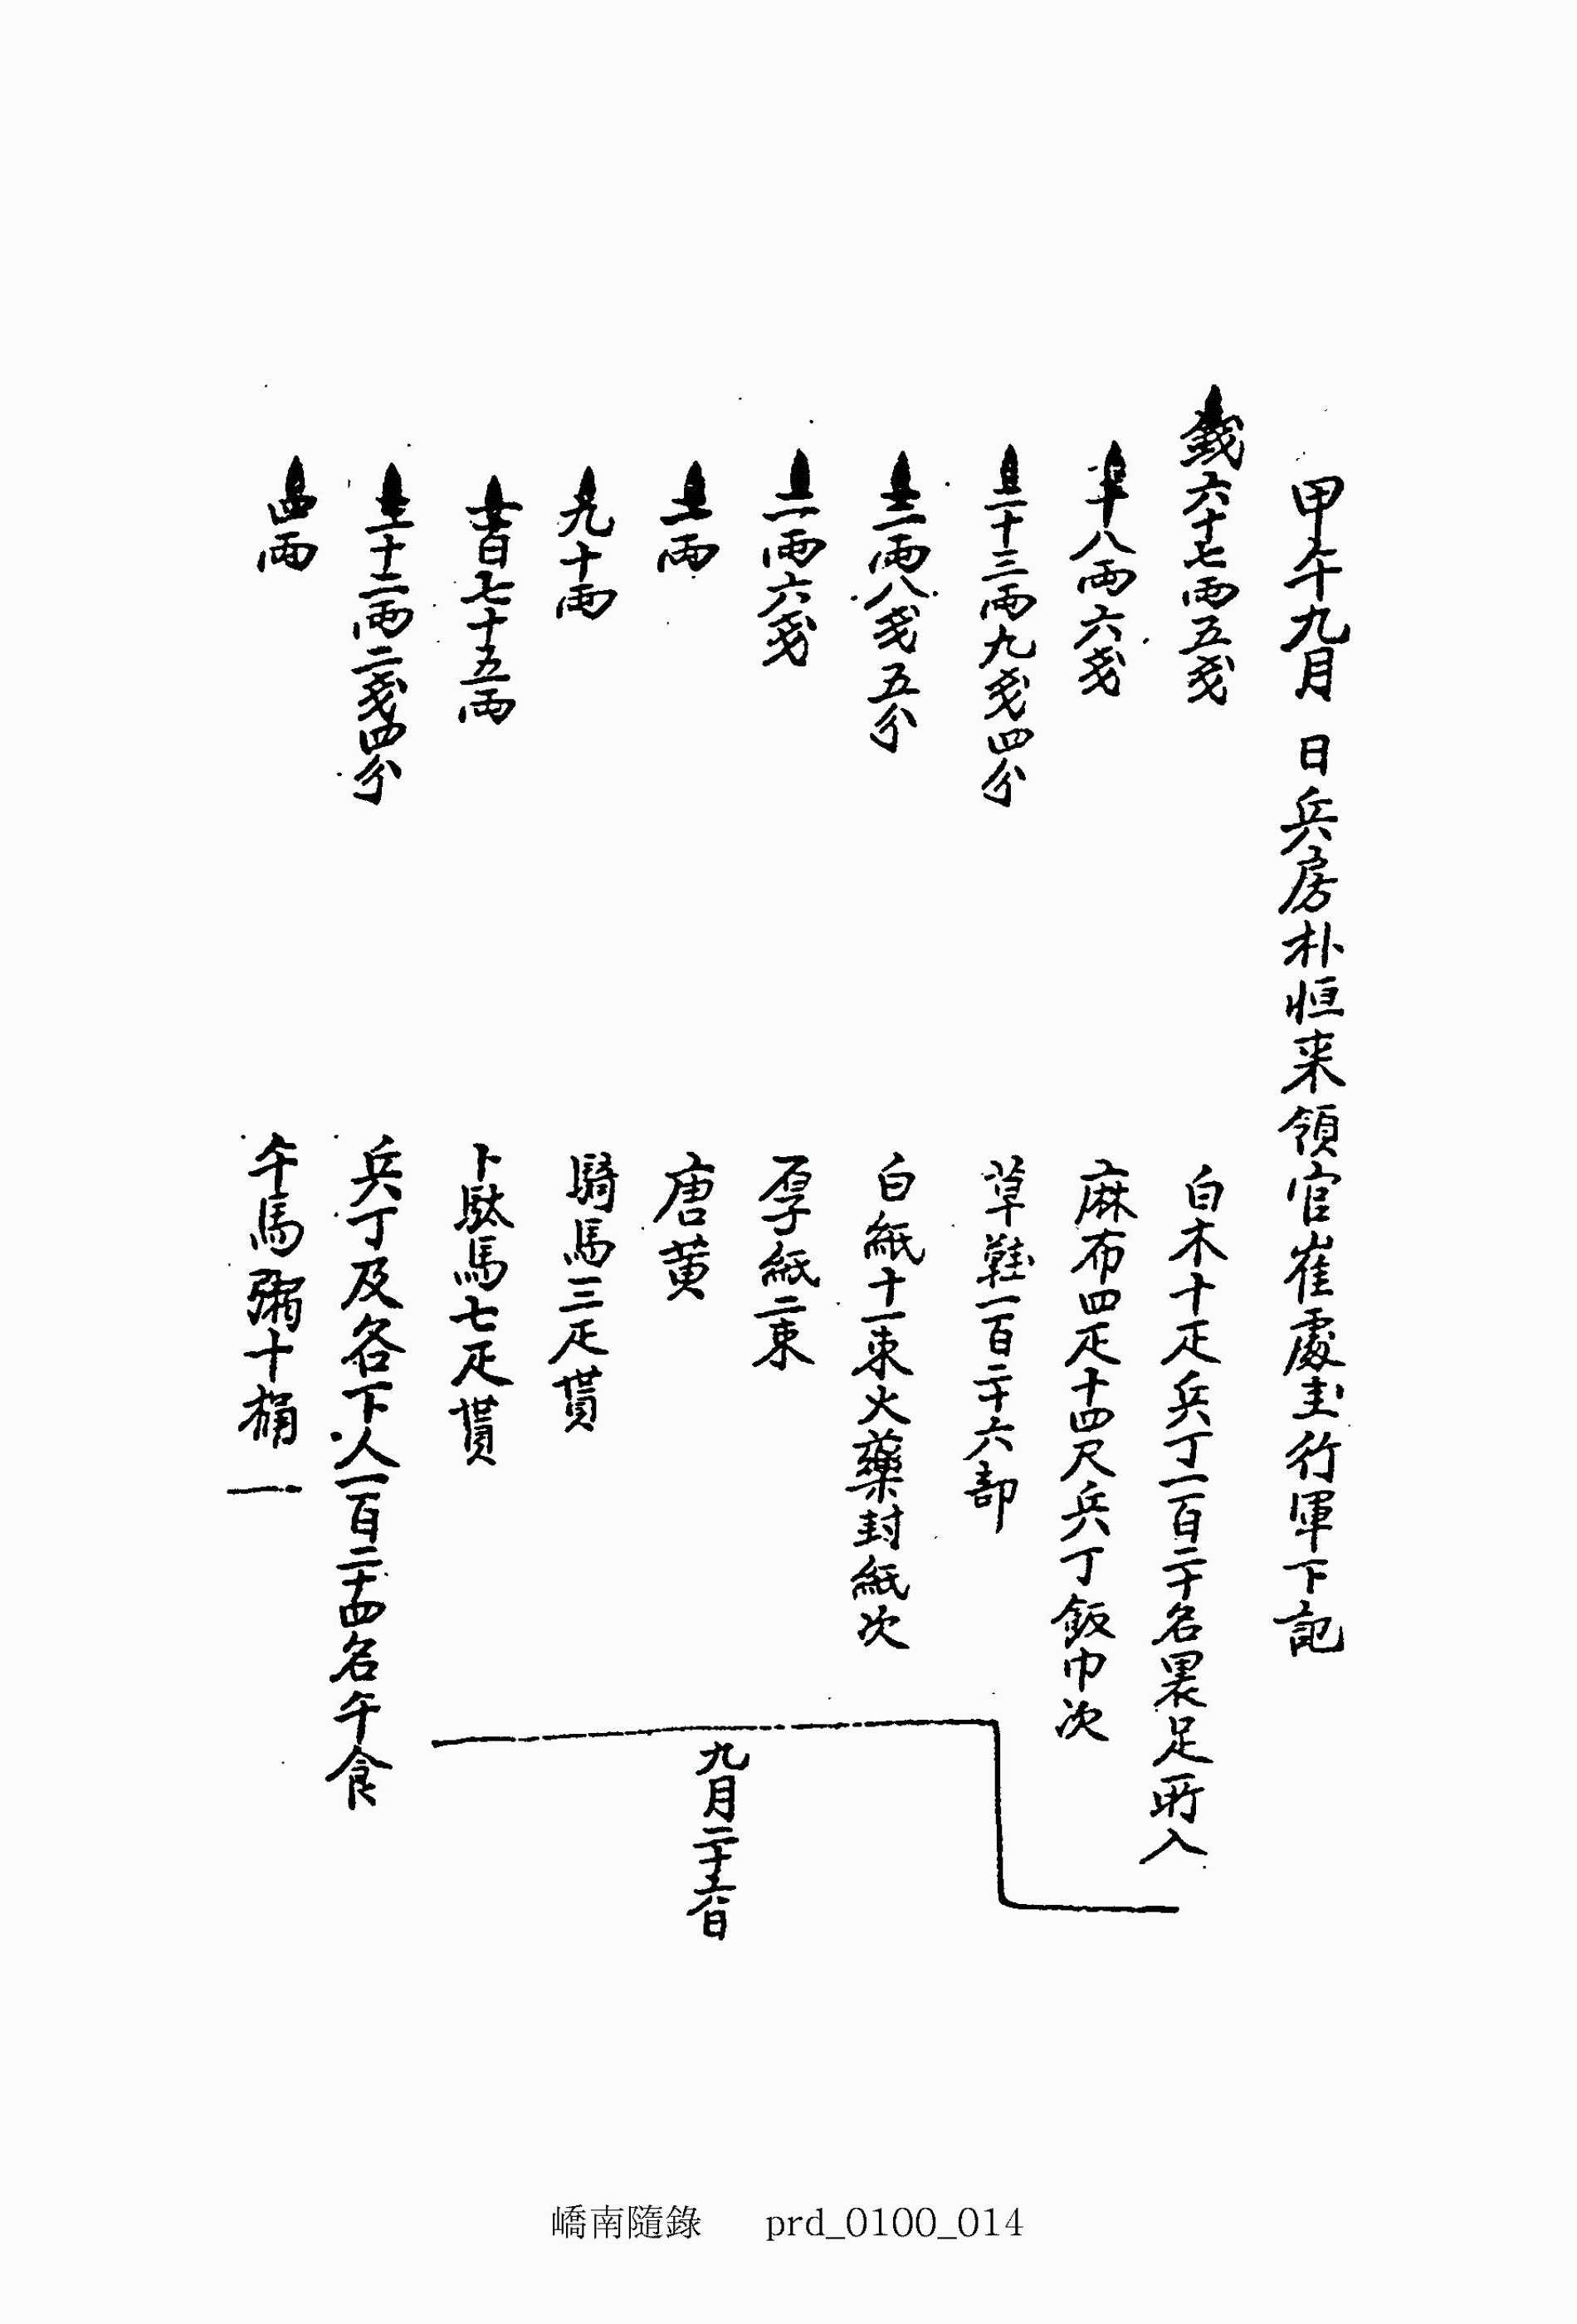 甲午九月 日兵房朴恒来領官崔處圭行軍下記
錢六十七兩五戔 白木十疋兵丁一百二十名裹足所入
十八兩六戔 麻布四疋十四尺兵丁飯巾次
二十三兩九戔四分 草鞋一百二十六部
三兩八戔五分 白紙十一束火藥封紙次
二兩六戔 厚紙二束
兩 唐黃
九十兩 騎馬三疋貰
一百七十五兩 卜駄馬七疋貰
九月二十六日
三十二兩二戔四分 兵丁及各下人一百二十四名午食
四兩 午馬粥十桶
嶠南隨錄 prd_0100_014